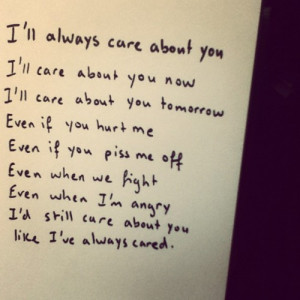 I'll always care about you
I'll care about you now
I'll care about you tomorrow
Even if you hurt me
Even if you piss me off
Even when we fight
Even when I'm angry
I'd still care about you
like I've always cared.